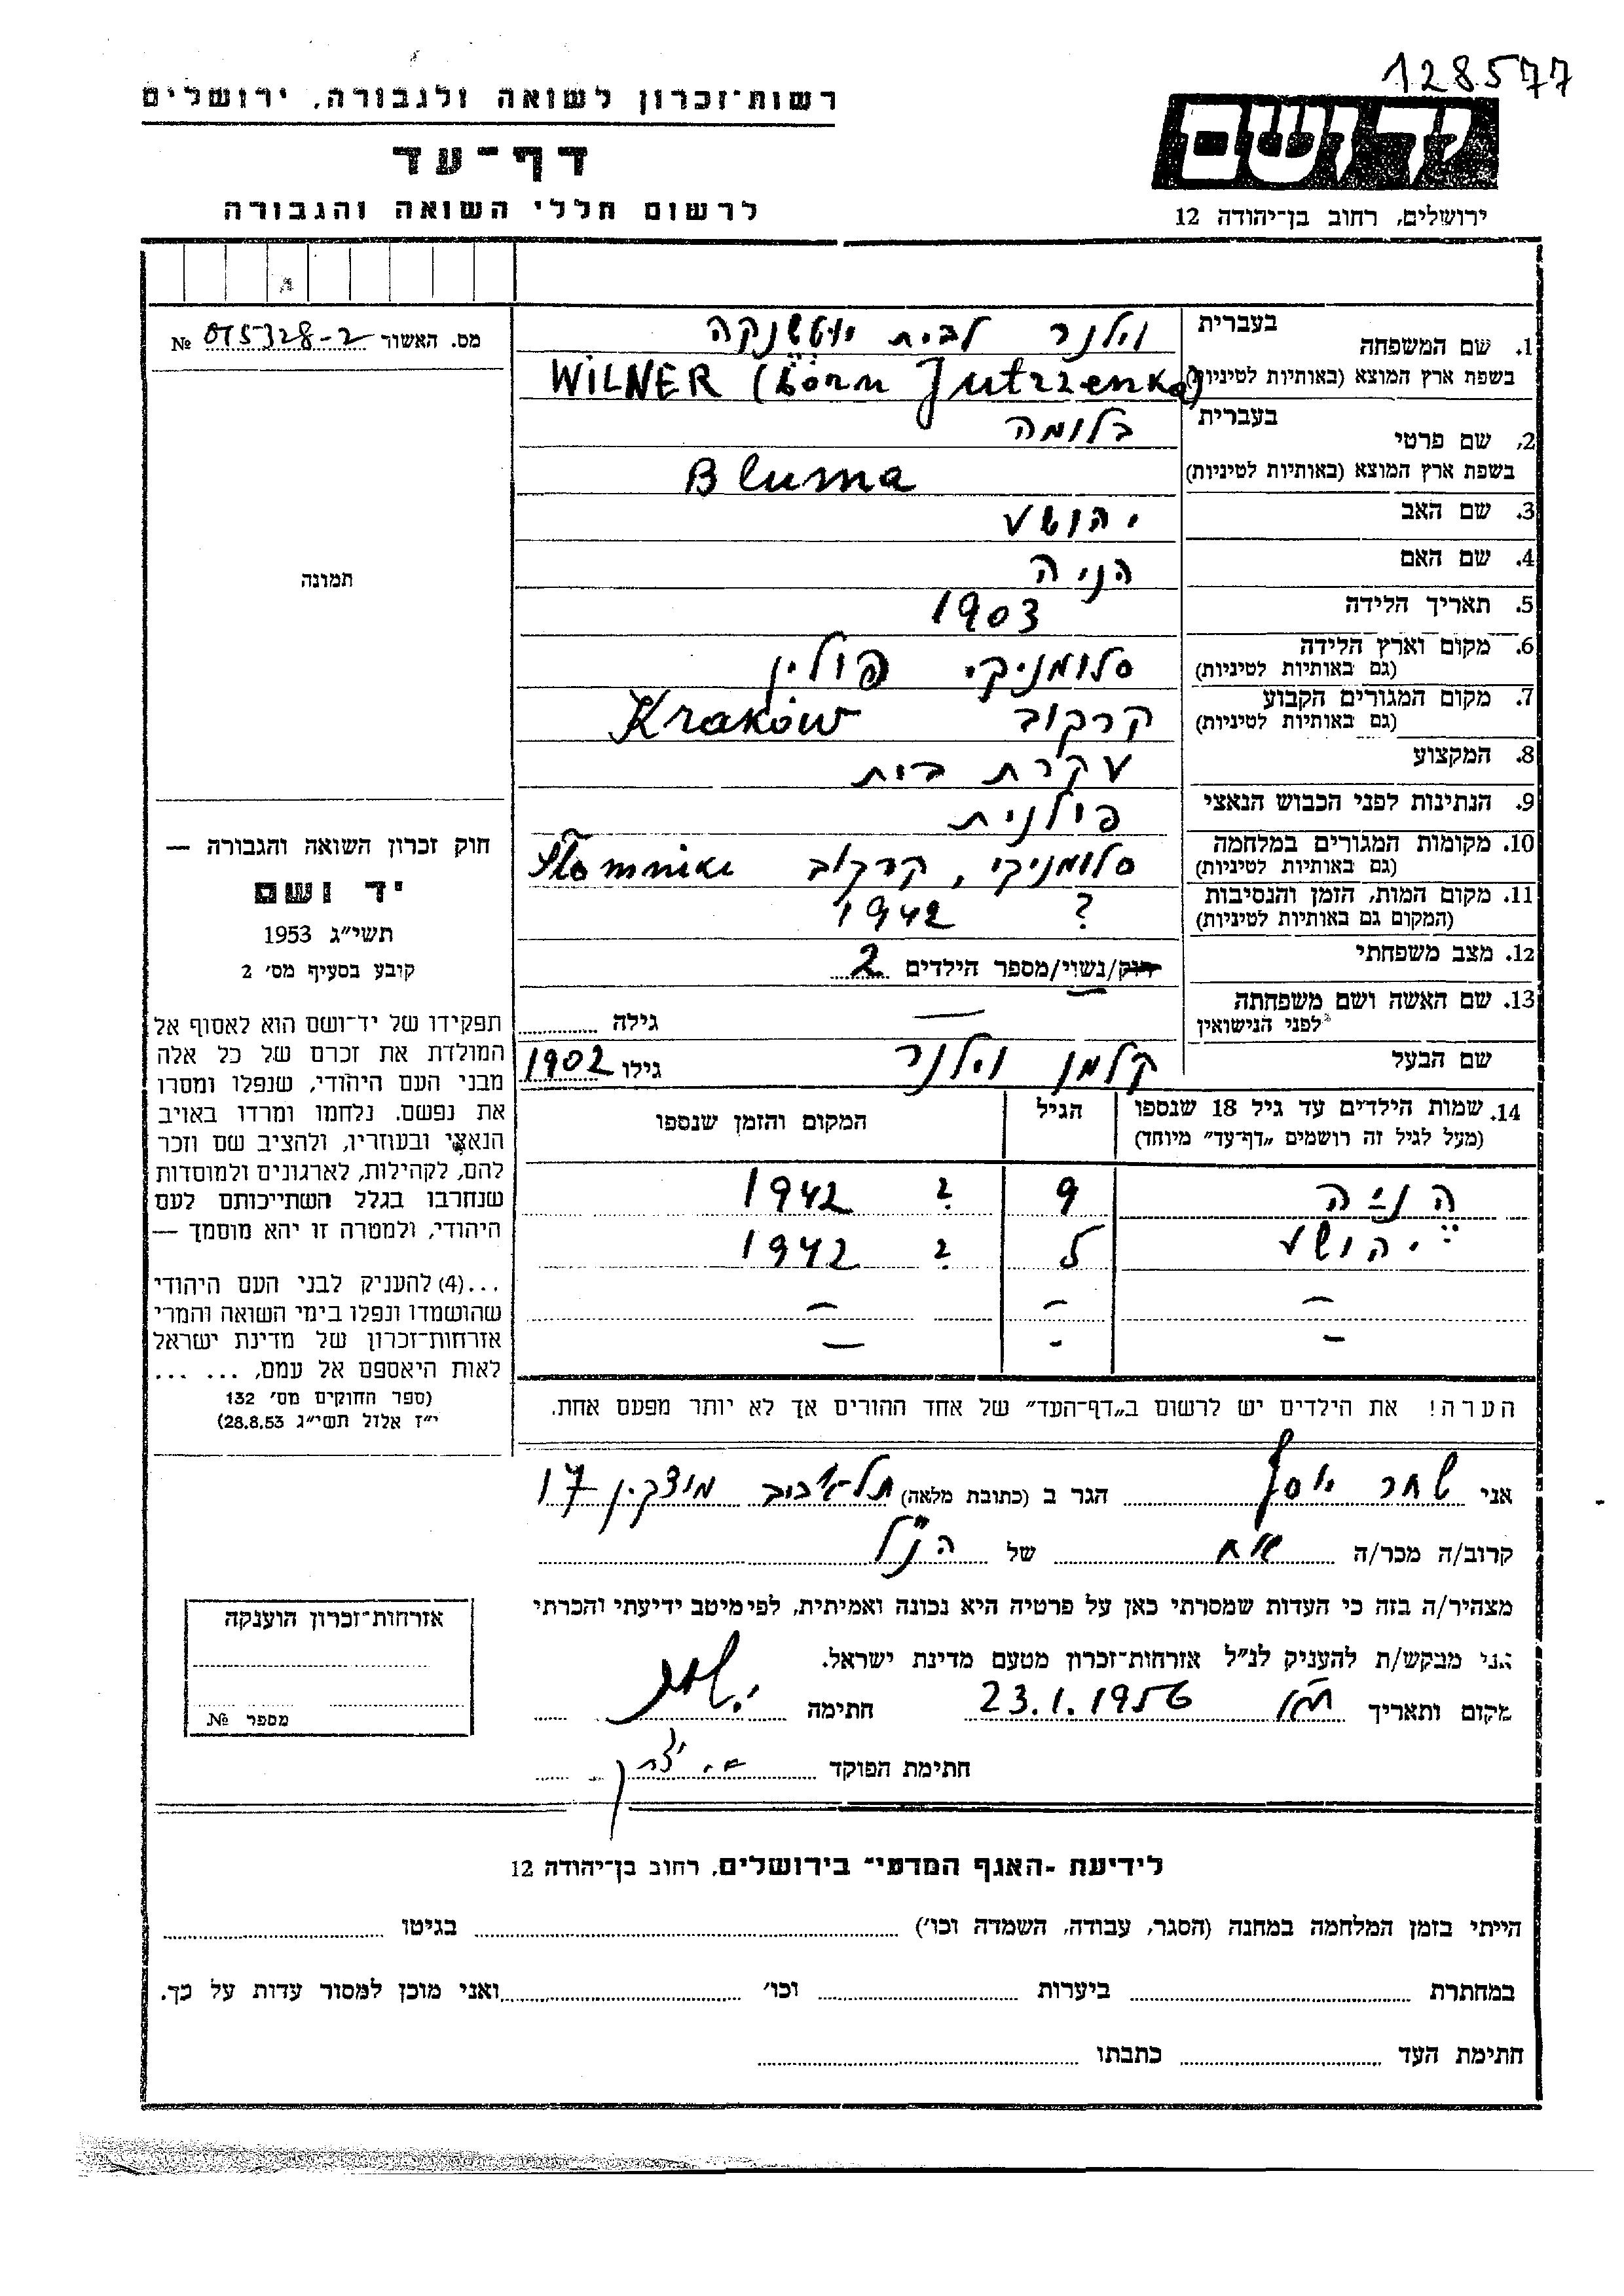 128577
רשות־זכרון לשואה ולגבורה, ירושלים
ידושם
דף־עד
לרשום חללי השואה והגבורה
ירושלים, רחוב בן־יהודה 12
מס. האשור 015328-2 №
תמונה
חוק זכרון השואה והגבורה —
יד ושם
תשי״ג 1953
קובע בסעיף מס׳ 2
תפקידו של יד־ושם הוא לאסוף אל
המולדת את זכרם של כל אלה
מבני העם היהודי, שנפלו ומסרו
את נפשם. נלחמו ומרדו באויב
הנאצי ובעוזריו, ולהציב שם וזכר
להם, לקהילות, לארגונים ולמוסדות
שנחרבו בגלל השתייכותם לעם
היהודי, ולמטרה זו יהא מוסמך —
...(4) להעניק לבני העם היהודי
שהושמדו ונפלו בימי השואה והמרי
אזרחות־זכרון של מדינת ישראל
לאות היאספם אל עמם, ... ...
(ספר החוקים מס׳ 132
י״ז אלול תשי״ג 28.8.53)
1. שם המשפחה בעברית וילנר לבית יוטשנקה
בשפת ארץ המוצא (באותיות לטיניות) WILNER (born Jutrzenka)
2. שם פרטי בעברית בלומה
בשפת ארץ המוצא (באותיות לטיניות) Bluma
3. שם האב יהושע
4. שם האם הניה
5. תאריך הלידה 1903
6. מקום וארץ הלידה סלומניקי פולין
(גם באותיות לטיניות)
7. מקום המגורים הקבוע קרקוב Kraków
(גם באותיות לטיניות)
8. המקצוע עקרת בית
9. הנתינות לפני הכבוש הנאצי פולנית
10. מקומות המגורים במלחמה סלומניקי, קרקוב Słomniki
(גם באותיות לטיניות)
11. מקום המות, הזמן והנסיבות ? 1942
(המקום גם באותיות לטיניות)
12. מצב משפחתי רוק/נשוי/מספר הילדים 2
13. שם האשה ושם משפחתה — גילה
לפני הנישואין
שם הבעל קלמן וילנר גילו 1902
14. שמות הילדים עד גיל 18 שנספו הגיל המקום והזמן שנספו
(מעל לגיל זה רושמים „דף־עד״ מיוחד)
הניה 9 ? 1942
יהושע ? 1942
— — —
— - —
הערה! את הילדים יש לרשום ב„דף־העד״ של אחד ההורים אך לא יותר מפעם אחת.
אני שחר יוסף הגר ב (כתובת מלאה) תל־אביב מוצקין 17
קרוב/ה מכר/ה אח של הנ״ל
מצהיר/ה בזה כי העדות שמסרתי כאן על פרטיה היא נכונה ואמיתית, לפי מיטב ידיעתי והכרתי
אני מבקש/ת להעניק לנ״ל אזרחות־זכרון מטעם מדינת ישראל.
מקום ותאריך ת״א 23.1.1956 חתימה
חתימת הפוקד
אזרחות־זכרון הוענקה
מספר №
לידיעת ־האגף המדעי־ בירושלים, רחוב בן־יהודה 12
הייתי בזמן המלחמה במחנה (הסגר, עבודה, השמדה וכו׳) בגיטו
במחתרת ביערות וכו׳ ואני מוכן למסור עדות על כך.
חתימת העד כתבתו